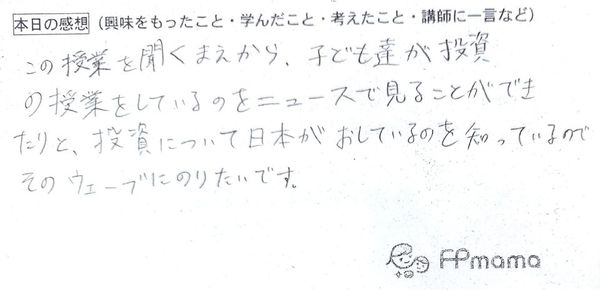 本日の感想（興味をもったこと・学んだこと・考えたこと・講師に一言など）
この授業を聞くまえから、子ども達が投資
の授業をしているのをニュースで見ることができ
たりと、投資について日本がおしているのを知っているので
そのウェーブにのりたいです。
FPmama